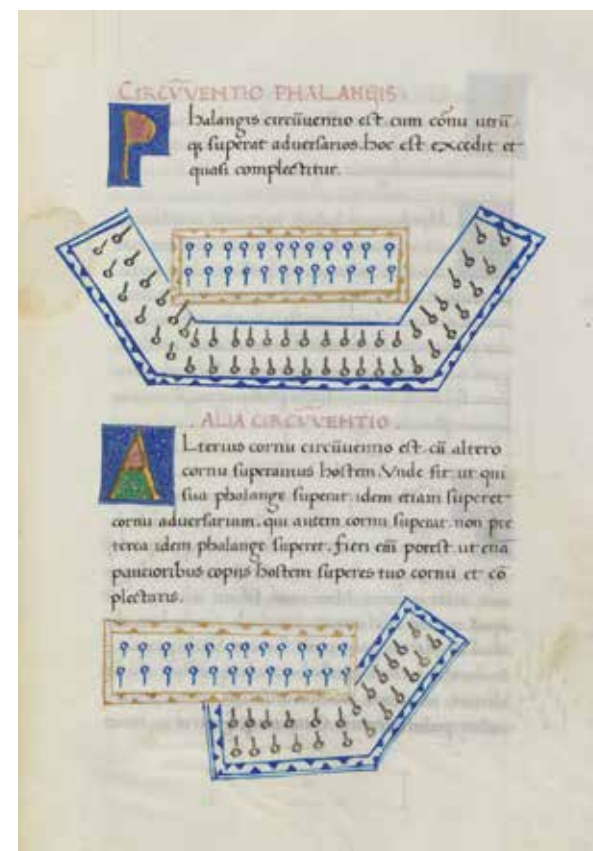 CIRCV̄VENTIO PHALANGIS
Phalangis circūuentio est cum cornu utrū
q; superat aduersarios. hoc est excedit et
quasi complectitur.
. ALIA CIRCV̄VENTIO .
ALterius cornu circūuentio est cū altero
cornu superamus hostem. Vnde fit ut qui
sua phalange superat idem etiam superet
cornu aduersarium. qui autem cornu superat. non pre
terea idem phalange superet. fieri enī potest ut etiā
paucioribus copijs hostem superes tuo cornu et cō
plectaris.